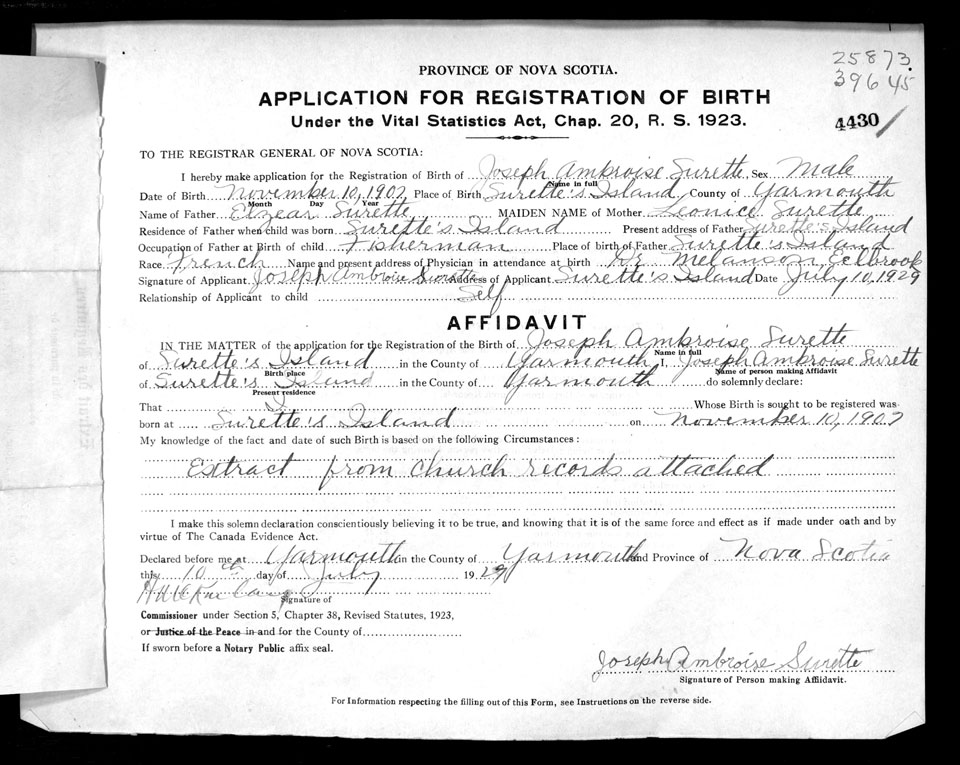 25873
39645
PROVINCE OF NOVA SCOTIA.
APPLICATION FOR REGISTRATION OF BIRTH
4430
Under the Vital Statistics Act, Chap. 20, R. S. 1923.
TO THE REGISTRAR GENERAL OF NOVA SCOTIA:
I hereby make application for the Registration of Birth of Joseph Ambroise Surette, Sex Male
Name in full
Date of Birth November 10, 1902 Place of Birth Surette's Island, County of Yarmouth
Month Day Year
Name of Father Elzear Surette MAIDEN NAME of Mother Leonice Surette
Residence of Father when child was born Surette's Island Present address of Father Surette's Island
Occupation of Father at Birth of child Fisherman Place of birth of Father Surette's Island
Race French Name and present address of Physician in attendance at birth Dr. Melanson, Eelbrook
Signature of Applicant Joseph Ambroise Surette Address of Applicant Surette's Island Date July 10, 1929
Relationship of Applicant to child Self
AFFIDAVIT
IN THE MATTER of the application for the Registration of the Birth of Joseph Ambroise Surette
Name in full
of Surette's Island in the County of Yarmouth I, Joseph Ambroise Surette
Birth place Name of person making Affidavit
of Surette's Island in the County of Yarmouth do solemnly declare:
Present residence
That I Whose Birth is sought to be registered was
born at Surette's Island on November 10, 1902
My knowledge of the fact and date of such Birth is based on the following Circumstances:
Extract from church records attached
I make this solemn declaration conscientiously believing it to be true, and knowing that it is of the same force and effect as if made under oath and by
virtue of The Canada Evidence Act.
Declared before me at Yarmouth in the County of Yarmouth and Province of Nova Scotia
this 10th day of July 1929
Signature of
Commissioner under Section 5, Chapter 38, Revised Statutes, 1923,
or Justice of the Peace in and for the County of
If sworn before a Notary Public affix seal.
Joseph Ambroise Surette
Signature of Person making Affidavit.
For Information respecting the filling out of this Form, see Instructions on the reverse side.